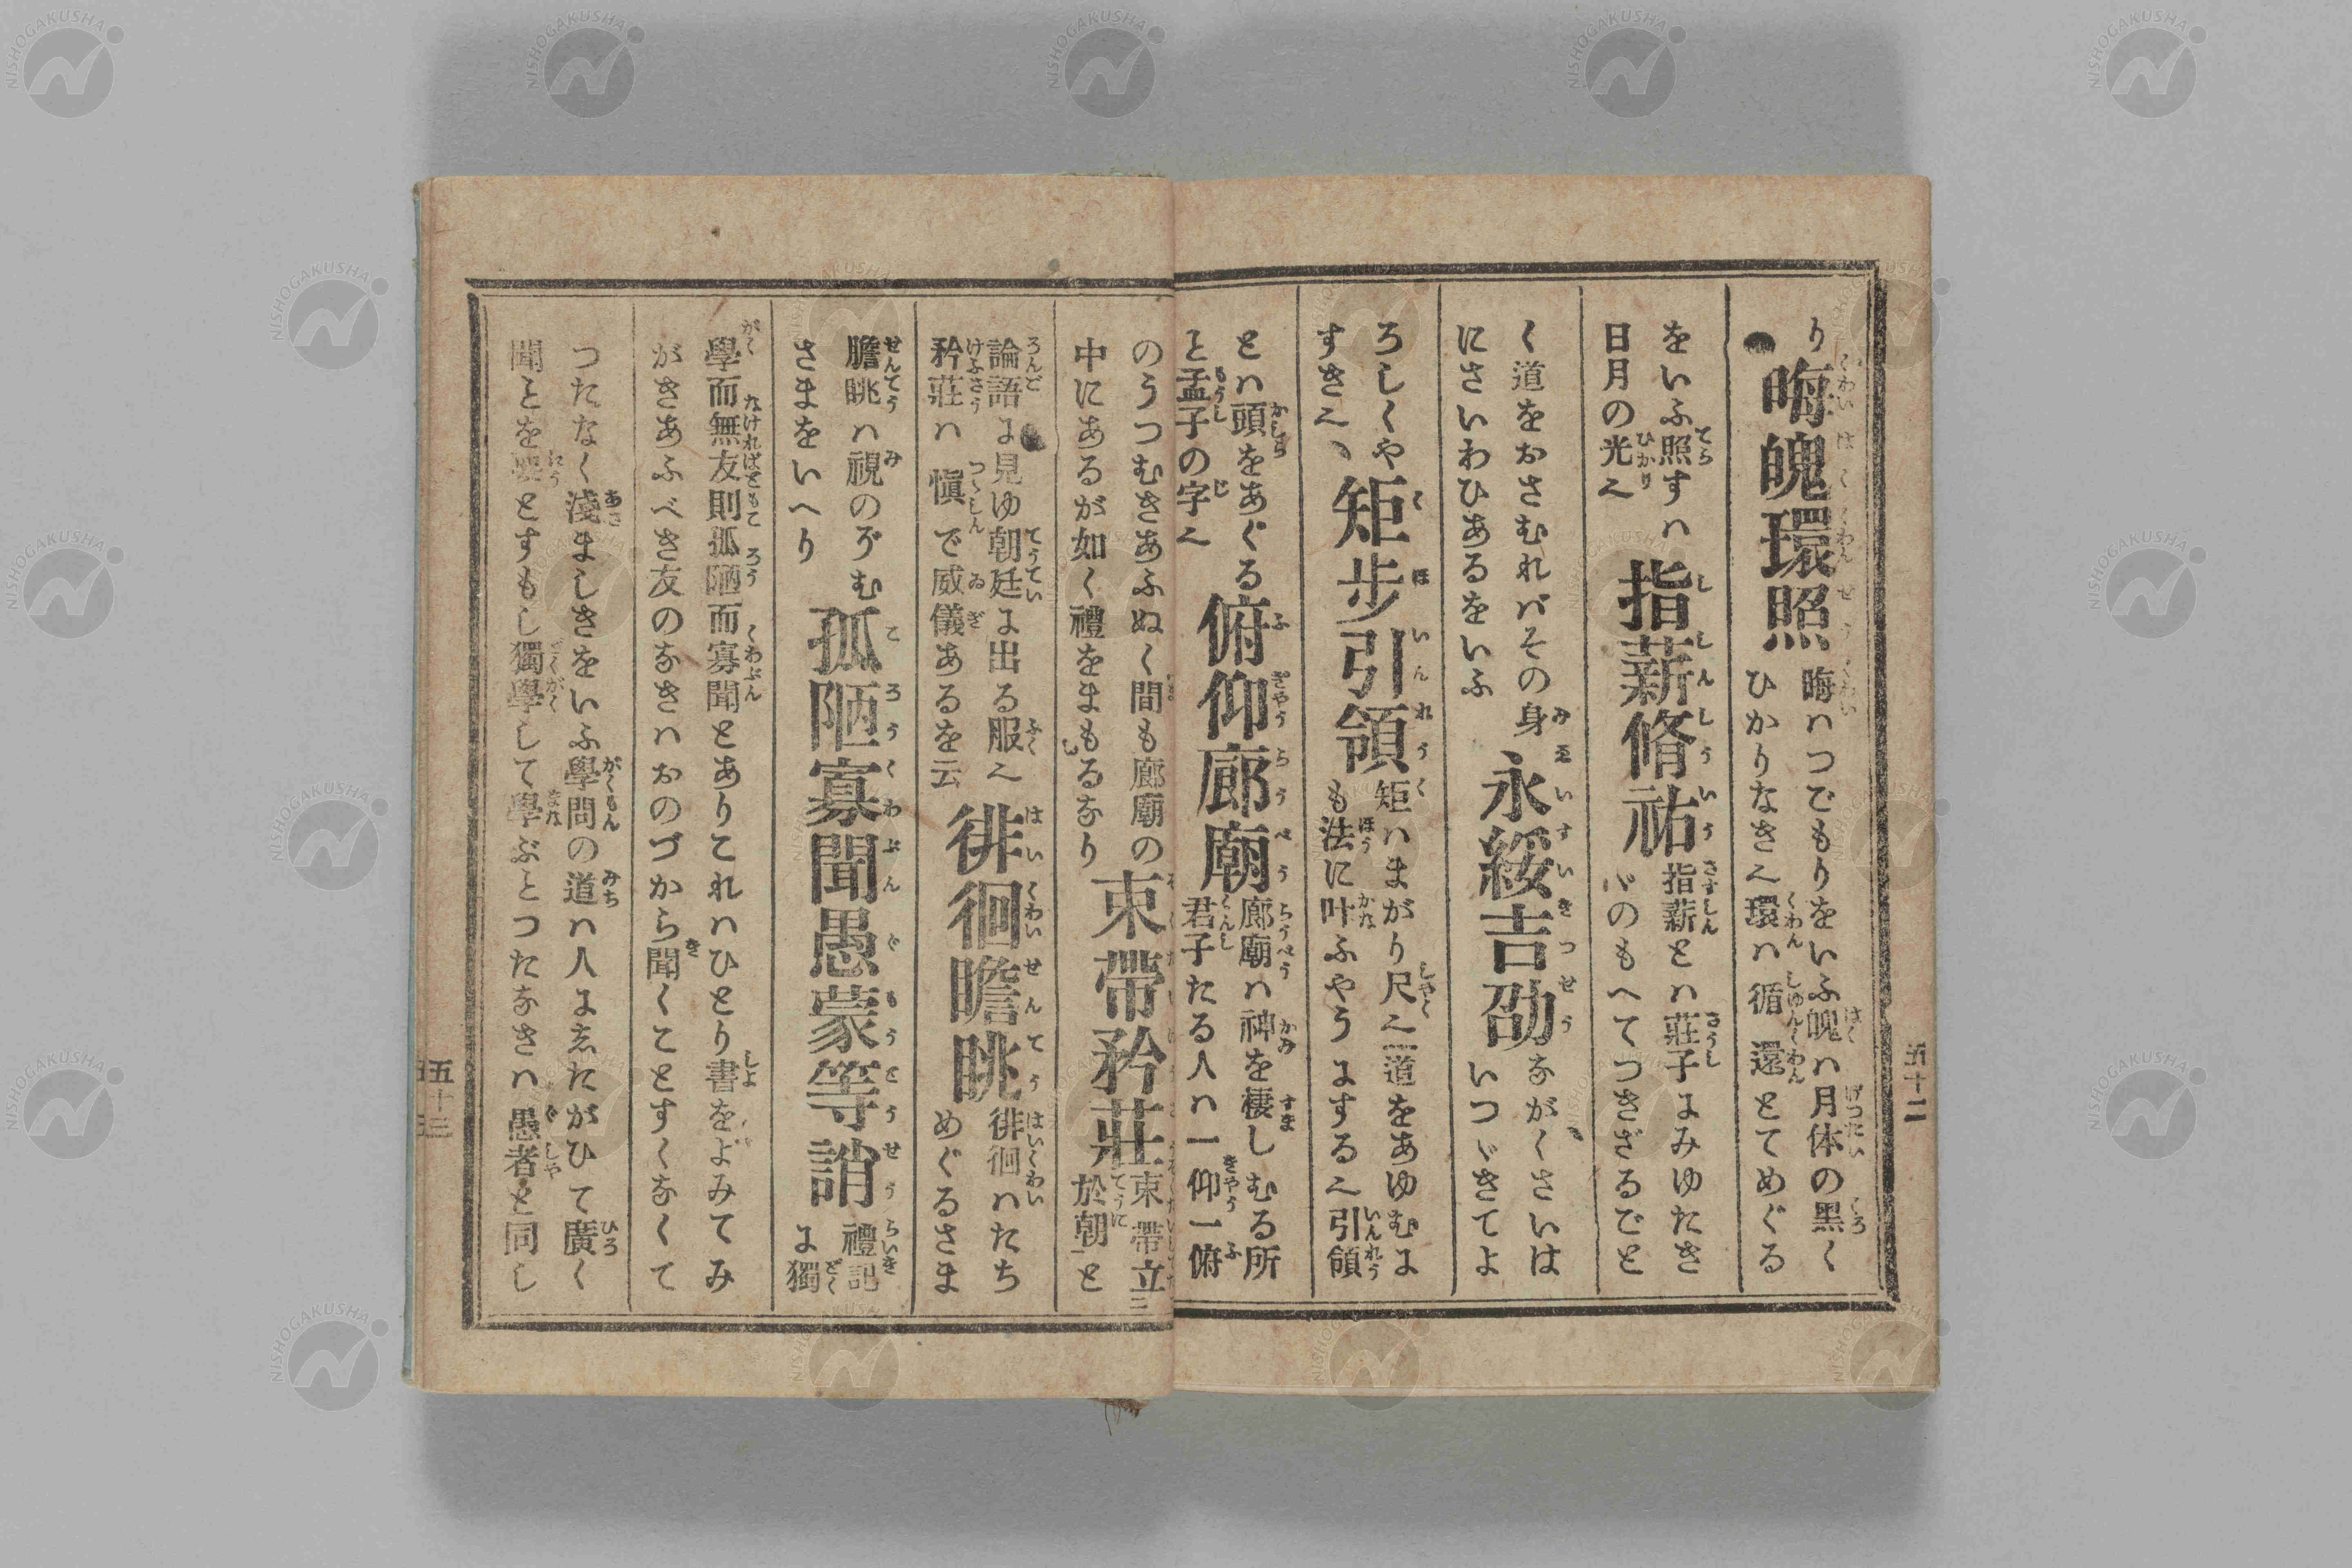 り
晦魄環照
晦ハつごもりをいふ魄ハ月体の黒く
ひかりなき也環ハ循還とてめぐる
をいふ照すハ
日月の光也
指薪脩祐
指薪とハ莊子にみゆたき
ゞのもへてつきざるごと
く道をおさむれバその身
にさいわひあるをいふ
永綏吉劭
ながくさいは
いつゞきてよ
ろしくや
すき也、
矩步引領
矩ハまがり尺也道をあゆむに
も法に叶ふやうにする也引領
とハ頭をあぐる
と孟子の字也
俯仰廊廟
廊廟ハ神を棲しむる所
君子たる人ハ一仰一俯
五十二
のうつむきあふぬく間も廊廟の
中にあるが如く禮をまもるなり
束帶矜莊
束帶立三
於朝一と
論語に見ゆ朝廷に出る服也
矜莊ハ愼で威儀あるを云
徘徊瞻眺
徘徊ハたち
めぐるさま
瞻眺ハ視のぞむ
さまをいへり
孤陋寡聞愚蒙等誚
禮記
に獨
學而無友則孤陋而寡聞とありこれハひとり書をよみてみ
がきあふべき友のなきハおのづから聞くことすくなくて
つたなく淺ましきをいふ學問の道ハ人にしたがひて廣く
聞とを要とすもし獨學して學ぶとつたなきハ愚者と同し
五十三